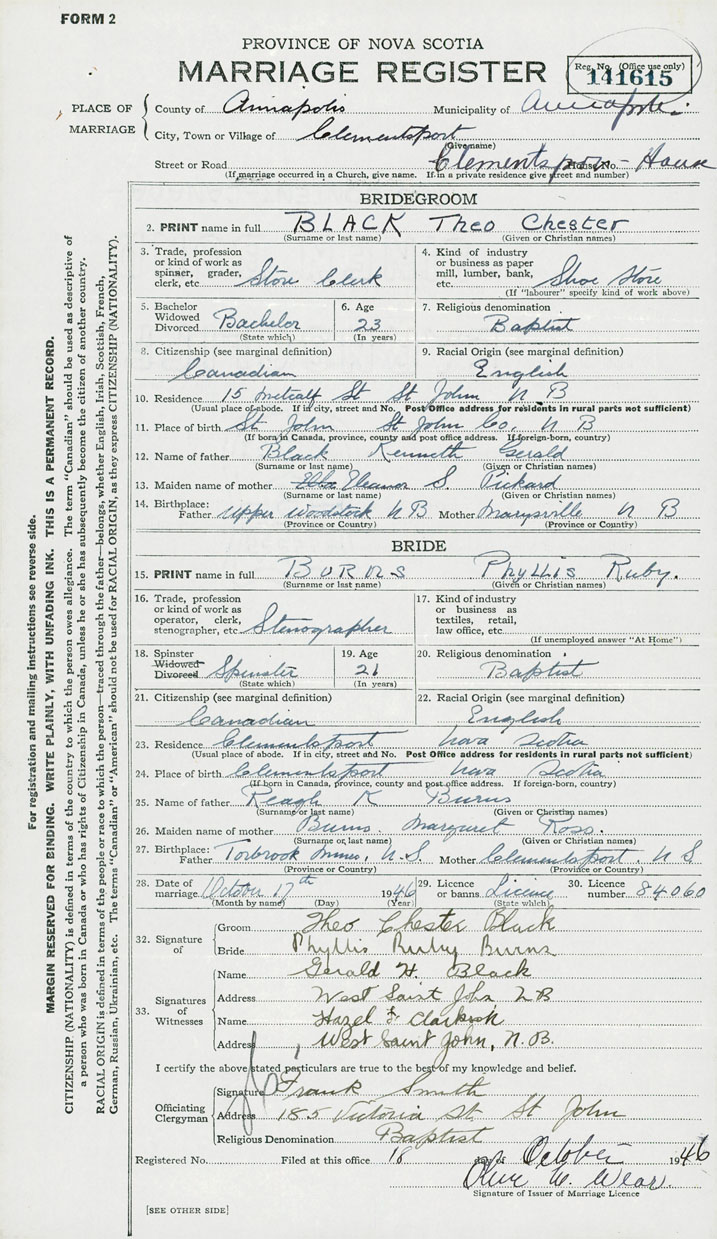 FORM 2
PROVINCE OF NOVA SCOTIA
MARRIAGE REGISTER
Reg. No. (Office use only)
141615
PLACE OF MARRIAGE
County of Annapolis Municipality of Annapolis
City, Town or Village of Clementsport
(Give name)
Street or Road Clementsport - House House No.
(If marriage occurred in a Church, give name. If in a private residence give street and number)
BRIDEGROOM
2. PRINT name in full BLACK Theo Chester
(Surname or last name) (Given or Christian names)
3. Trade, profession or kind of work as spinner, grader, clerk, etc. Store Clerk
4. Kind of industry or business as paper mill, lumber, bank, etc. Shoe Store
(If "labourer" specify kind of work above)
5. Bachelor Widowed Divorced Bachelor
(State which)
6. Age 23
(In years)
7. Religious denomination
Baptist
8. Citizenship (see marginal definition)
Canadian
9. Racial Origin (see marginal definition)
English
10. Residence 15 Metcalf St St John N B
(Usual place of abode. If in city, street and No. Post Office address for residents in rural parts not sufficient)
11. Place of birth St. John St John Co, N B
(If born in Canada, province, county and post office address. If foreign-born, country)
12. Name of father Black Kenneth Gerald
(Surname or last name) (Given or Christian names)
13. Maiden name of mother Eleanor S. Pickard
(Surname or last name) (Given or Christian names)
14. Birthplace: Father Upper Woodstock N B Mother Marysville N B
(Province or Country) (Province or Country)
BRIDE
15. PRINT name in full BURNS Phyllis Ruby.
(Surname or last name) (Given or Christian names)
16. Trade, profession or kind of work as operator, clerk, stenographer, etc. Stenographer
17. Kind of industry or business as textiles, retail, law office, etc.
(If unemployed answer "At Home")
18. Spinster Widowed Divorced Spinster
(State which)
19. Age 21
(In years)
20. Religious denomination
Baptist
21. Citizenship (see marginal definition)
Canadian
22. Racial Origin (see marginal definition)
English
23. Residence Clementsport Nova Scotia
(Usual place of abode. If in city, street and No. Post Office address for residents in rural parts not sufficient)
24. Place of birth Clementsport Nova Scotia
(If born in Canada, province, county and post office address. If foreign-born, country)
25. Name of father K Burns
(Surname or last name) (Given or Christian names)
26. Maiden name of mother Burns Margaret Ross.
(Surname or last name) (Given or Christian names)
27. Birthplace: Father Torbrook Mines, N.S. Mother Clementsport. N S
(Province or Country) (Province or Country)
28. Date of marriage October 17th 1946
(Month by name) (Day) (Year)
29. Licence or banns Licence
(State which)
30. Licence number 84060
32. Signature of
Groom Theo Chester Black
Bride Phyllis Ruby Burns
33. Signatures of Witnesses
Name Gerald H. Black
Address West Saint John N B
Name Hazel F
Address West Saint John, N.B.
I certify the above stated particulars are true to the best of my knowledge and belief.
Officiating Clergyman
Signature Frank Smith
Address 185 Victoria St. St John
Religious Denomination Baptist
Registered No. Filed at this office 18 day of October 1946
Olive M. Wear.
Signature of Issuer of Marriage Licence
[SEE OTHER SIDE]
For registration and mailing instructions see reverse side.
MARGIN RESERVED FOR BINDING. WRITE PLAINLY, WITH UNFADING INK. THIS IS A PERMANENT RECORD.
CITIZENSHIP (NATIONALITY) is defined in terms of the country to which the person owes allegiance. The term "Canadian" should be used as descriptive of
a person who was born in Canada or who has rights of Citizenship in Canada, unless he or she has subsequently become the citizen of another country.
RACIAL ORIGIN is defined in terms of the people or race to which the person—traced through the father—belongs, whether English, Irish, Scottish, French,
German, Russian, Ukrainian, etc. The terms "Canadian" or "American" should not be used for RACIAL ORIGIN, as they express CITIZENSHIP (NATIONALITY).